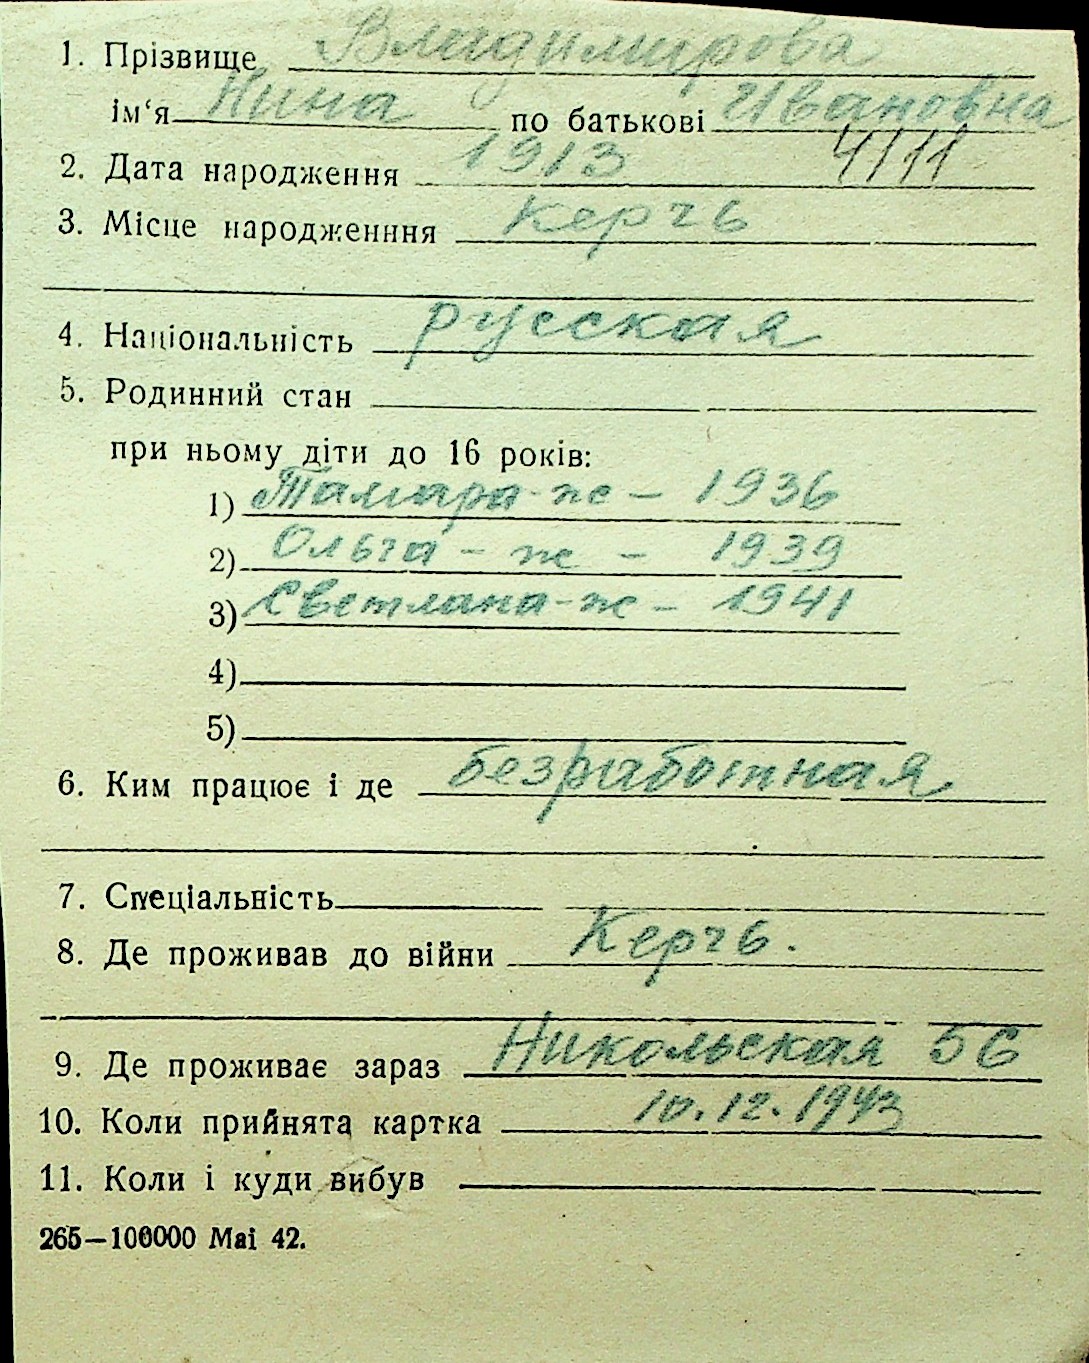 1. Прізвище Владимирова
ім‘я Нина по батькові Ивановна
2. Дата народження 1913 4/11
3. Місце народженння Керчь
4. Національність русская
5. Родинний стан
при ньому діти до 16 років:
1) Тамара - ж - 1936
2) Ольга - ж - 1939
3) Светлана - ж - 1941
4)
5)
6. Ким працює і де безработная
7. Спеціальність
8. Де проживав до війни Керчь.
9. Де проживає зараз Никольская 56
10. Коли прийнята картка 10.12.1943
11. Коли і куди вибув
265—100000 Mai 42.